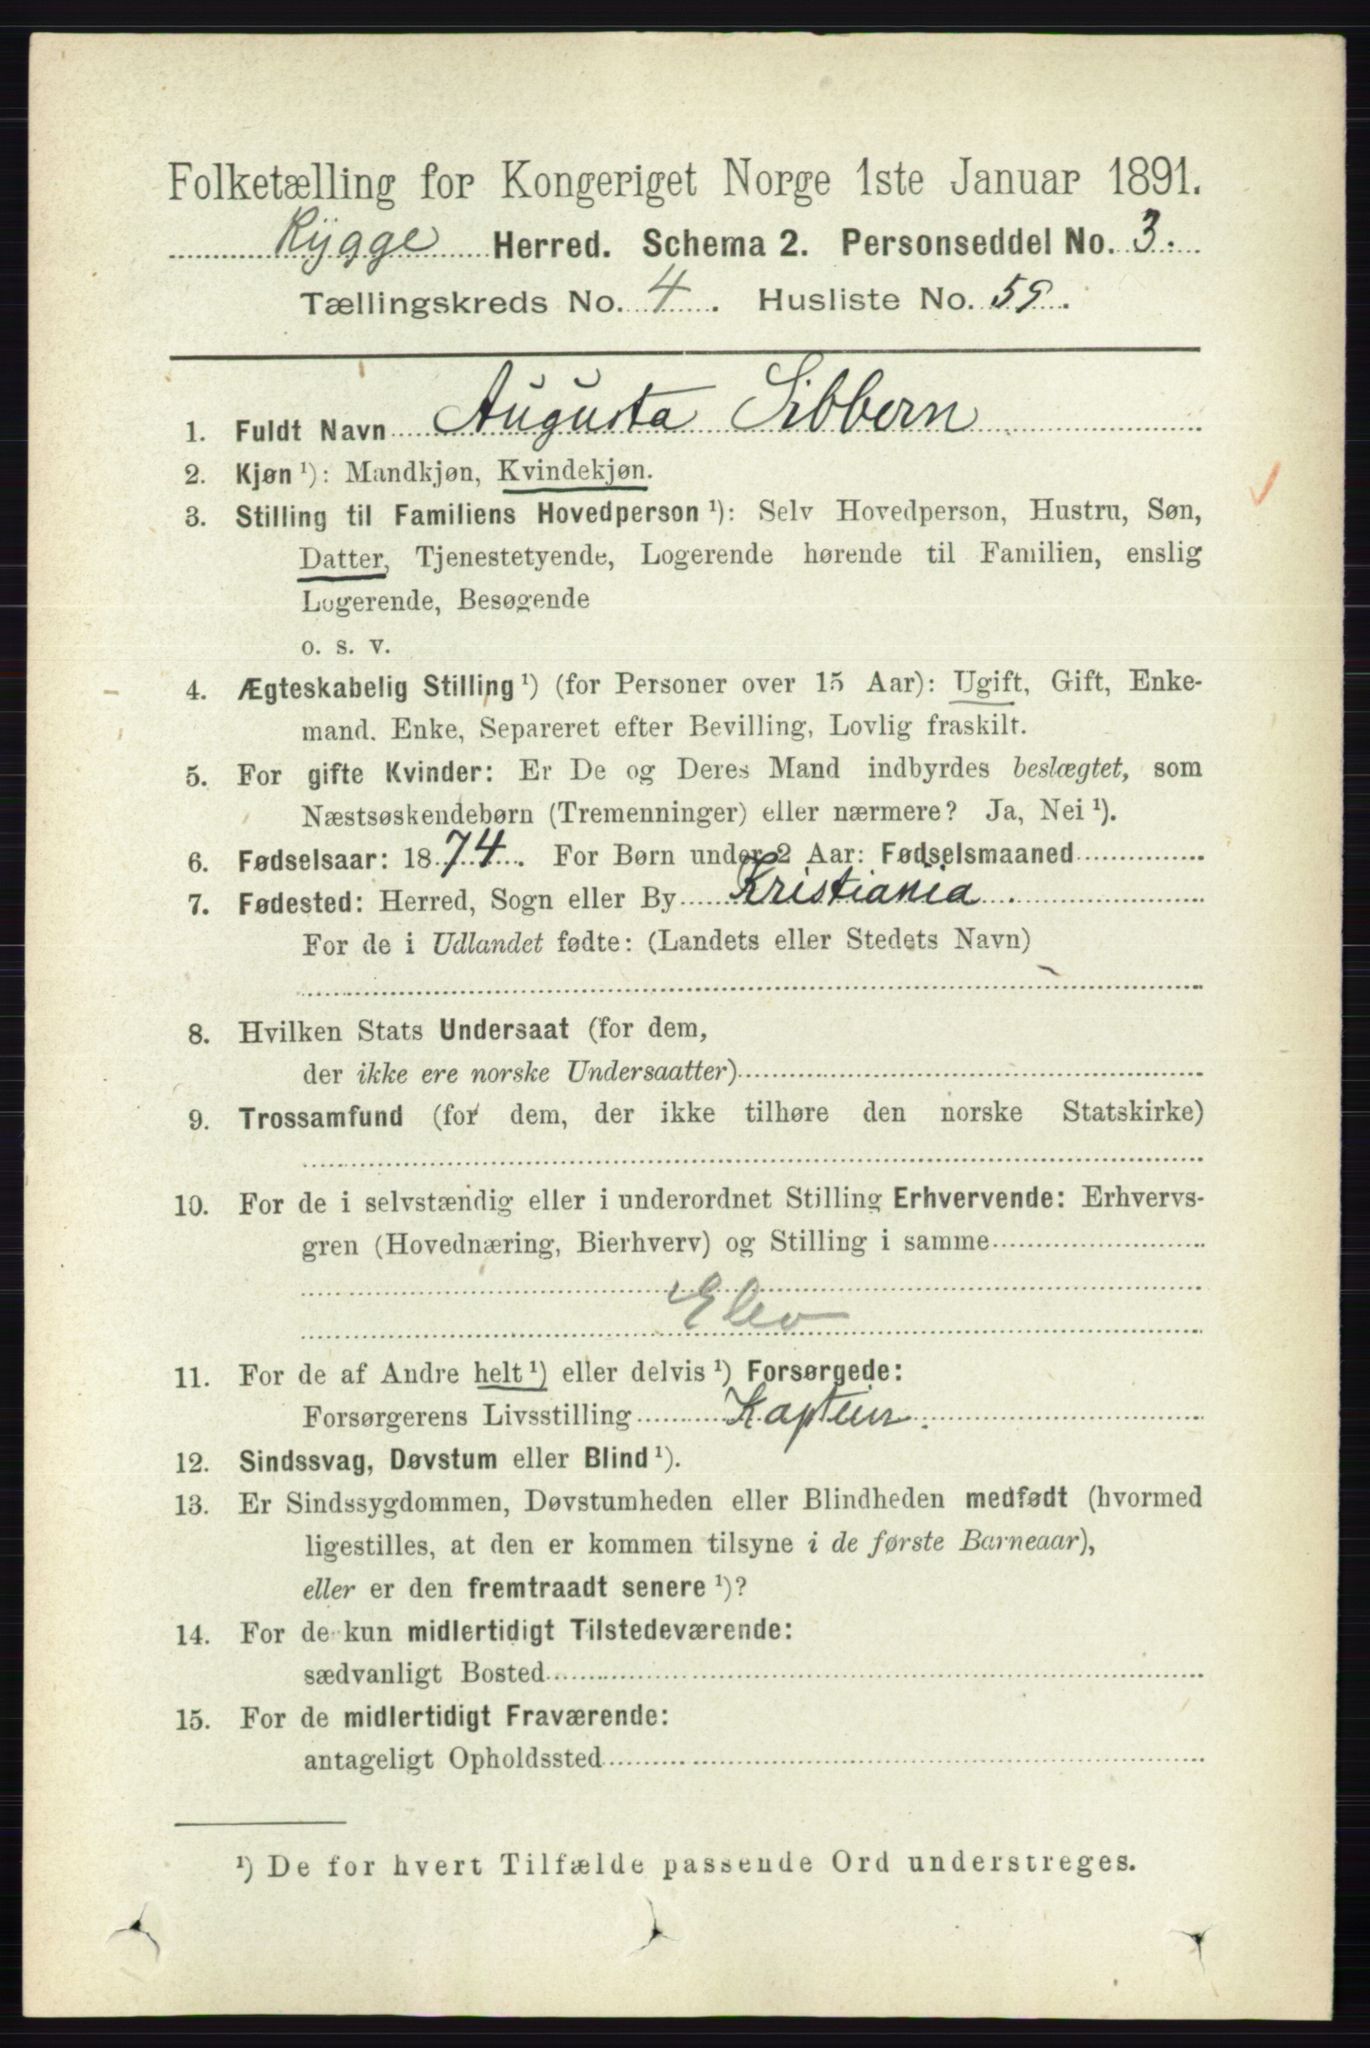 Folketælling for Kongeriget Norge 1ste Januar 1891.
Rygge Herred. Schema 2. Personseddel No. 3.
Tællingskreds No. 4. Husliste No. 59.
1. Fuldt Navn Augusta Sibbern
2. Kjøn ¹): Mandkjøn, Kvindekjøn.
3. Stilling til Familiens Hovedperson ¹): Selv Hovedperson, Hustru, Søn,
Datter, Tjenestetyende, Logerende hørende til Familien, enslig
Logerende, Besøgende
o. s. v.
4. Ægteskabelig Stilling ¹) (for Personer over 15 Aar): Ugift, Gift, Enke-
mand. Enke, Separeret efter Bevilling, Lovlig fraskilt.
5. For gifte Kvinder: Er De og Deres Mand indbyrdes beslægtet, som
Næstsøskendebørn (Tremenninger) eller nærmere? Ja, Nei ¹).
6. Fødselsaar: 1874. For Børn under 2 Aar: Fødselsmaaned
7. Fødested: Herred, Sogn eller By Kristiania.
For de i Udlandet fødte: (Landets eller Stedets Navn)
8. Hvilken Stats Undersaat (for dem,
der ikke ere norske Undersaatter)
9. Trossamfund (for dem, der ikke tilhøre den norske Statskirke)
10. For de i selvstændig eller i underordnet Stilling Erhvervende: Erhvervs-
gren (Hovednæring, Bierhverv) og Stilling i samme
Elev
11. For de af Andre helt ¹) eller delvis ¹) Forsørgede:
Forsørgerens Livsstilling Kaptein.
12. Sindssvag, Døvstum eller Blind ¹).
13. Er Sindssygdommen, Døvstumheden eller Blindheden medfødt (hvormed
ligestilles, at den er kommen tilsyne i de første Barneaar),
eller er den fremtraadt senere ¹)?
14. For de kun midlertidigt Tilstedeværende:
sædvanligt Bosted
15. For de midlertidigt Fraværende:
antageligt Opholdssted
¹) De for hvert Tilfælde passende Ord understreges.